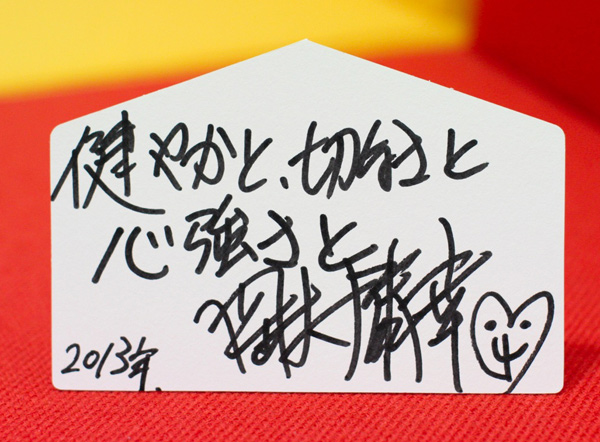 健やかと、切なさと
心強さと
2013年